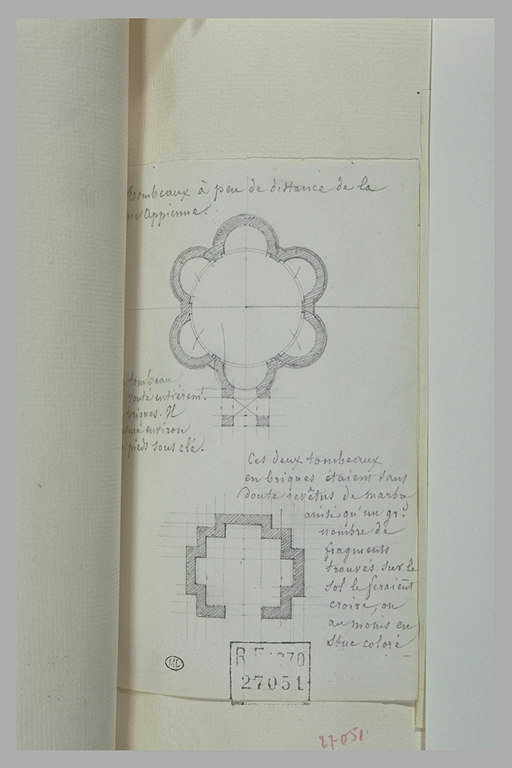 Tombeaux à peu de distance de la
voie Appienne.
tombeau
voûté entièrem.t
briques. Il
environ
pieds sous clé.
Ces deux tombeaux
en briques étaient sans
doute revêtus de marbre
ainsi qu'un gr.d
nombre de
fragments
trouvés sur le
sol le feraient
croire, ou
au moins en
stuc coloré
ML
27051
27051